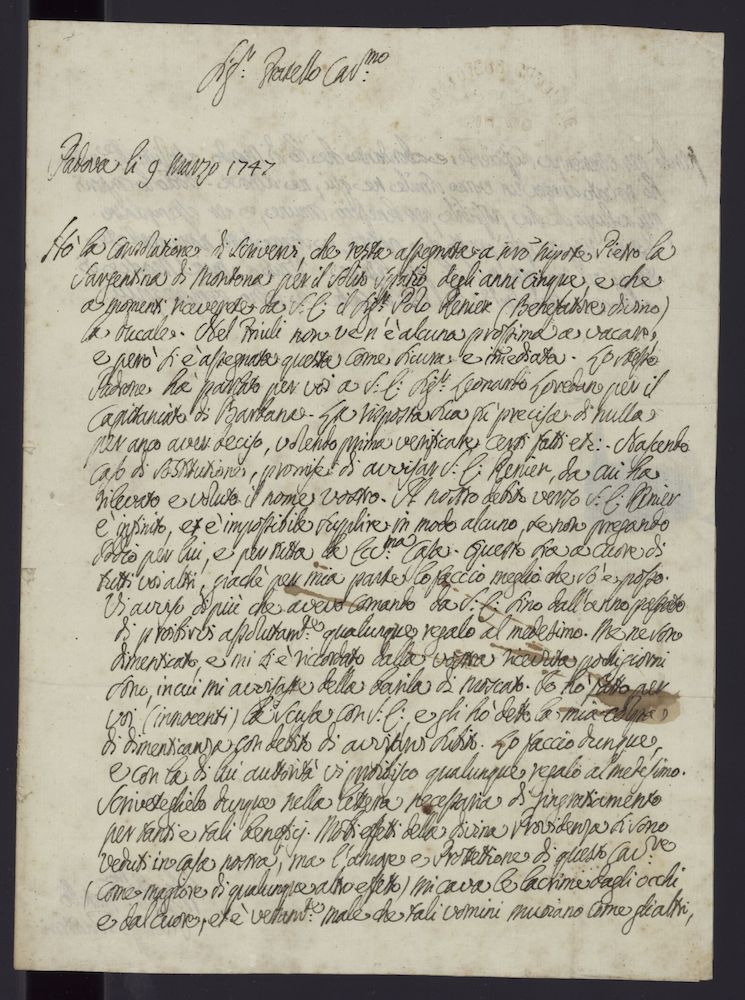 Sig.r Fratello Car.mo
Padova li 9 Marzo 1747
Hò la consolatione di scrivervi, che resta assegnata a nrõ Nipote Pietro la
Sargentina di Montona per il solito spatio degli anni cinque, e che
a momenti riceverete da S. E: il Sig.r Polo Renier (Benefattore divino)
la Ducale. Nel Friuli non ve n'è alcuna prossima a vacare,
e però si è assegnata questa come sicura e imediata. Lo stesso
Padrone ha parlato per voi a S. E: Sig.r Leonardo Loredan per il
Capitaniato di Barbana. La risposta sua fù precisa di nulla
per anco aver deciso, volendo prima verificare certi fatti etc: Nascendo
caso di sostitutione, promise di avvisar S. E: Renier, da cui ha
rilevato e voluto il nome vostro. Il nostro debito verso S. E: Renier
è infinito, et è impossibile supplire in modo alcuno, se non pregando
Iddio per lui, e per tutta la Ecc.ma Casa. Questo sia a cuore di
tutti voi altri, giachè per mia parte lo faccio meglio che sò e posso.
Vi avviso di più che avevo comando da S. E: sino dall'anno passato
di proibirvi assolutam.te qualunque regalo al medesimo. Me ne son
dimenticato, e mi si è ricordato dalla vostra ricevuta pochi giorni
sono, in cui mi avvisaste della barila di moscato. Io hò fatto per
voi (innocenti) la scusa con S. E: e gli hò detto la mia colpa
di dimenticanza con debito di avvisarvi subito. Lo faccio dunque,
e con la di lui auttorità vi proibisco qualunque regalo al medesimo.
Scriveteglielo dunque nella lettera necessaria di ringratiamento
per tanti e tali beneficij. Molti effetti della divina Providenza si sono
veduti in casa nostra, ma l'amore e Protettione di questo Cav.re
(come maggiore di qualunque altro effetto) mi cava le lacrime dagli occhi,
e dal cuore, et è veram.te male che tali uomini muoiano come gli altri,